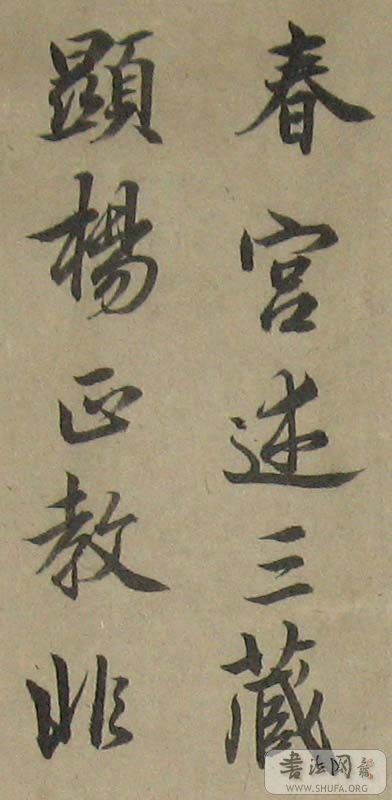 春宮述三藏
顯楊正教非
書法网
WWW.SHUFA.ORG